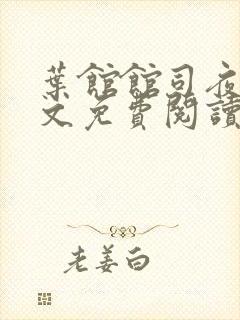 葉館館司夜
文免費閱讀
老姜白